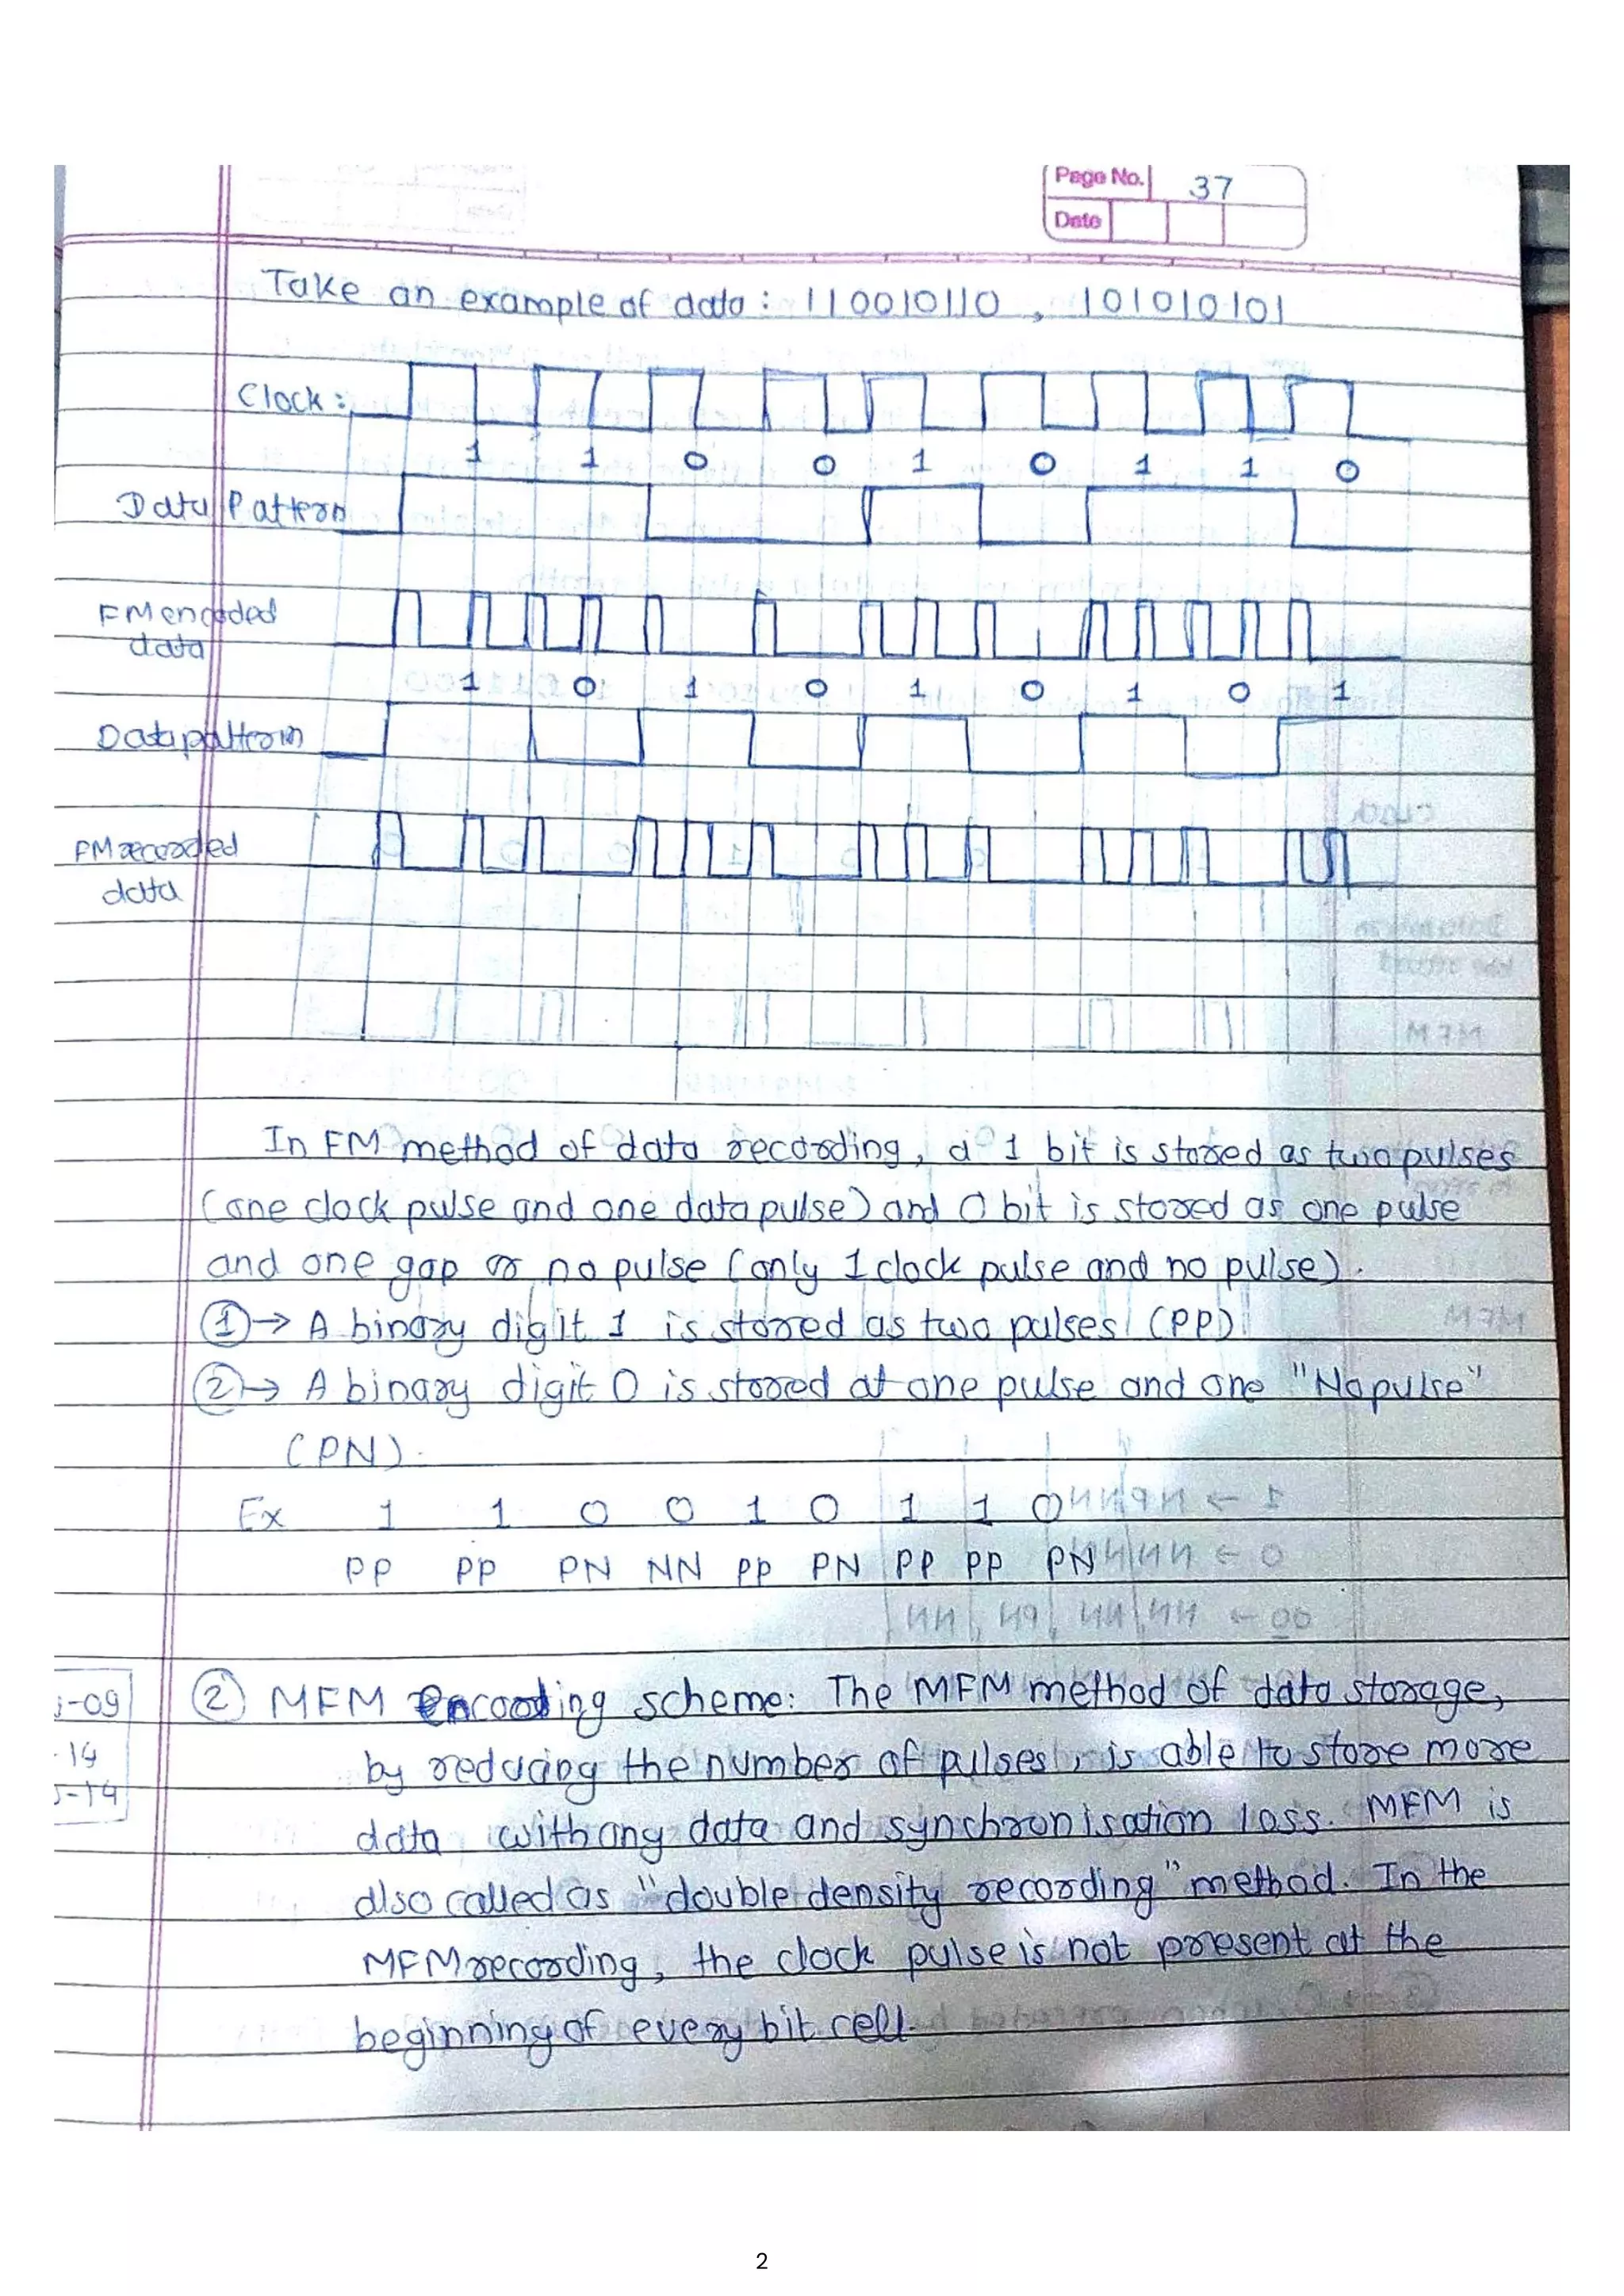 Page No. 37
Date
Take an example of data : 110010110 , 101010101
Clock :
1 1 0 0 1 0 1 1 0
Data Pattern
FM encoded
data
1 0 1 0 1 0 1 0 1
Data pattern
FM recorded
data
In FM method of data recording, a 1 bit is stored as two pulses
(one clock pulse and one data pulse) and 0 bit is stored as one pulse
and one gap or no pulse (only 1 clock pulse and no pulse).
① → A binary digit 1 is stored as two pulses (PP)
② → A binary digit 0 is stored at one pulse and one "No pulse"
(PN).
Ex 1 1 0 0 1 0 1 1 0
PP PP PN NN PP PN PP PP PN
-09
② MFM Encoding scheme: The MFM method of data storage,
-14
by reducing the number of pulses, is able to store more
-14
data with any data and synchronisation loss. MFM is
also called as "double density recording" method. In the
MFM recording, the clock pulse is not present at the
beginning of every bit cell.
2